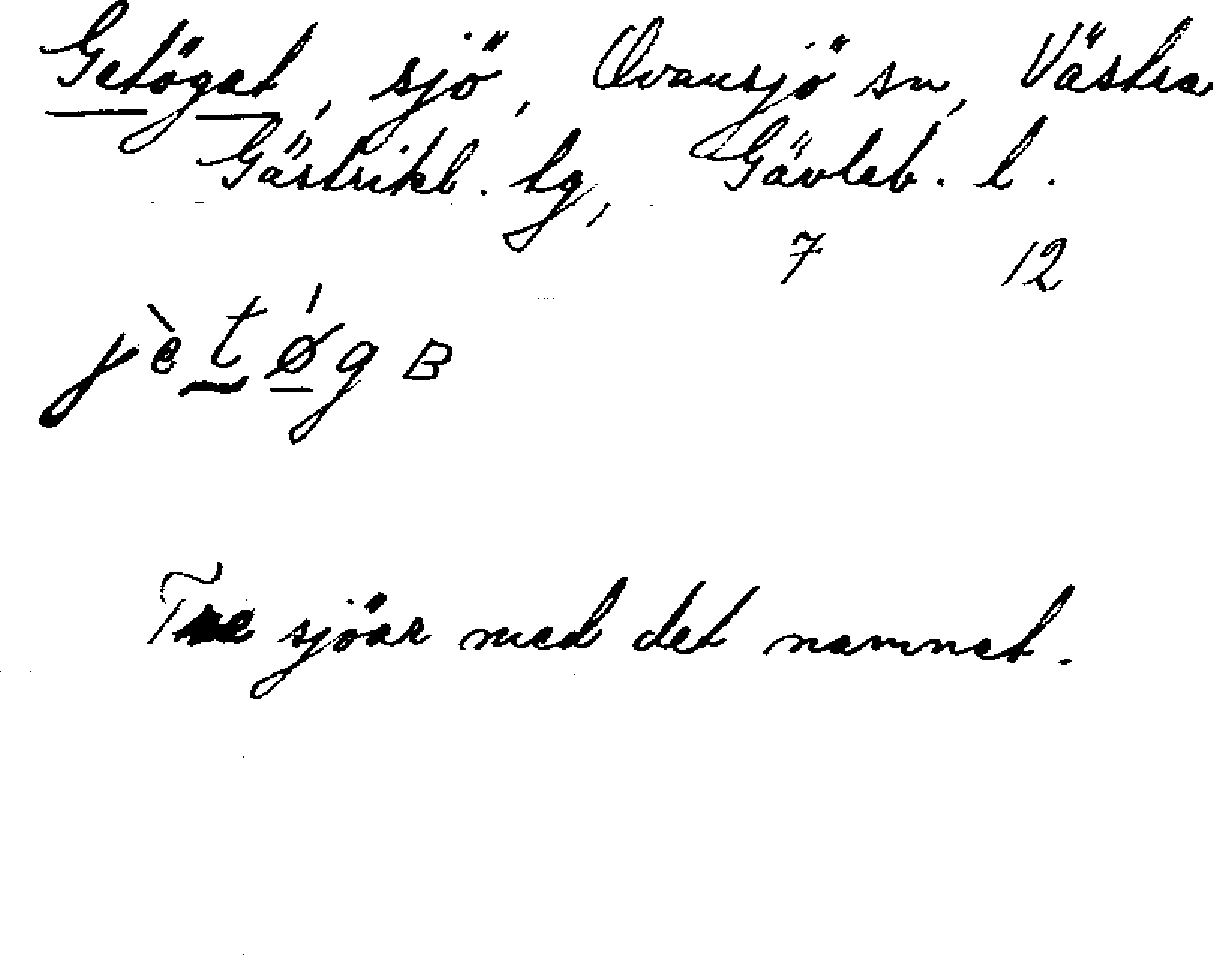 Getögat, sjö, Ovansjö sn, Västra
Gästrikl. tg, Gävleb. l.
7 12
jè t ǿ g B
Tre sjöar med det namnet.